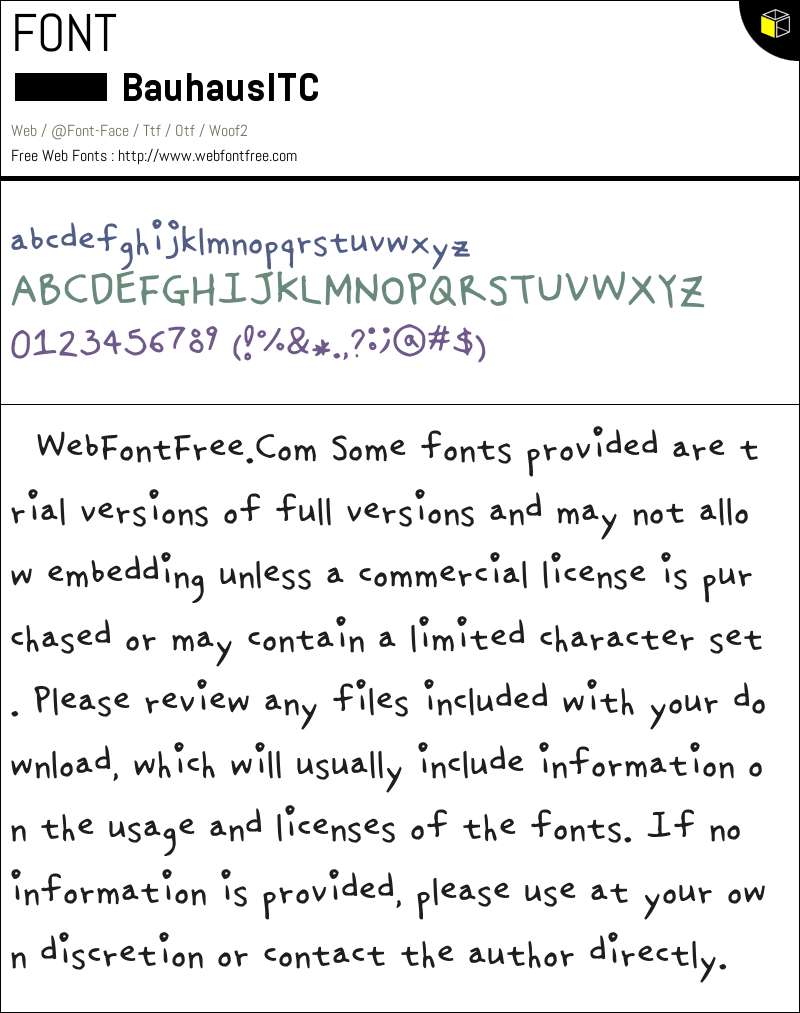 FONT
BauhausITC
Web / @Font-Face / Ttf / Otf / Woof2
Free Web Fonts : http://www.webfontfree.com
abcdefghijklmnopqrstuvwxyz
ABCDEFGHIJKLMNOPQRSTUVWXYZ
0123456789 (!%&*.,?:;@#$)
WebFontFree.Com Some fonts provided are t
rial versions of full versions and may not allo
w embedding unless a commercial license is pur
chased or may contain a limited character set
. Please review any files included with your do
wnload, which will usually include information o
n the usage and licenses of the fonts. If no
information is provided, please use at your ow
n discretion or contact the author directly.